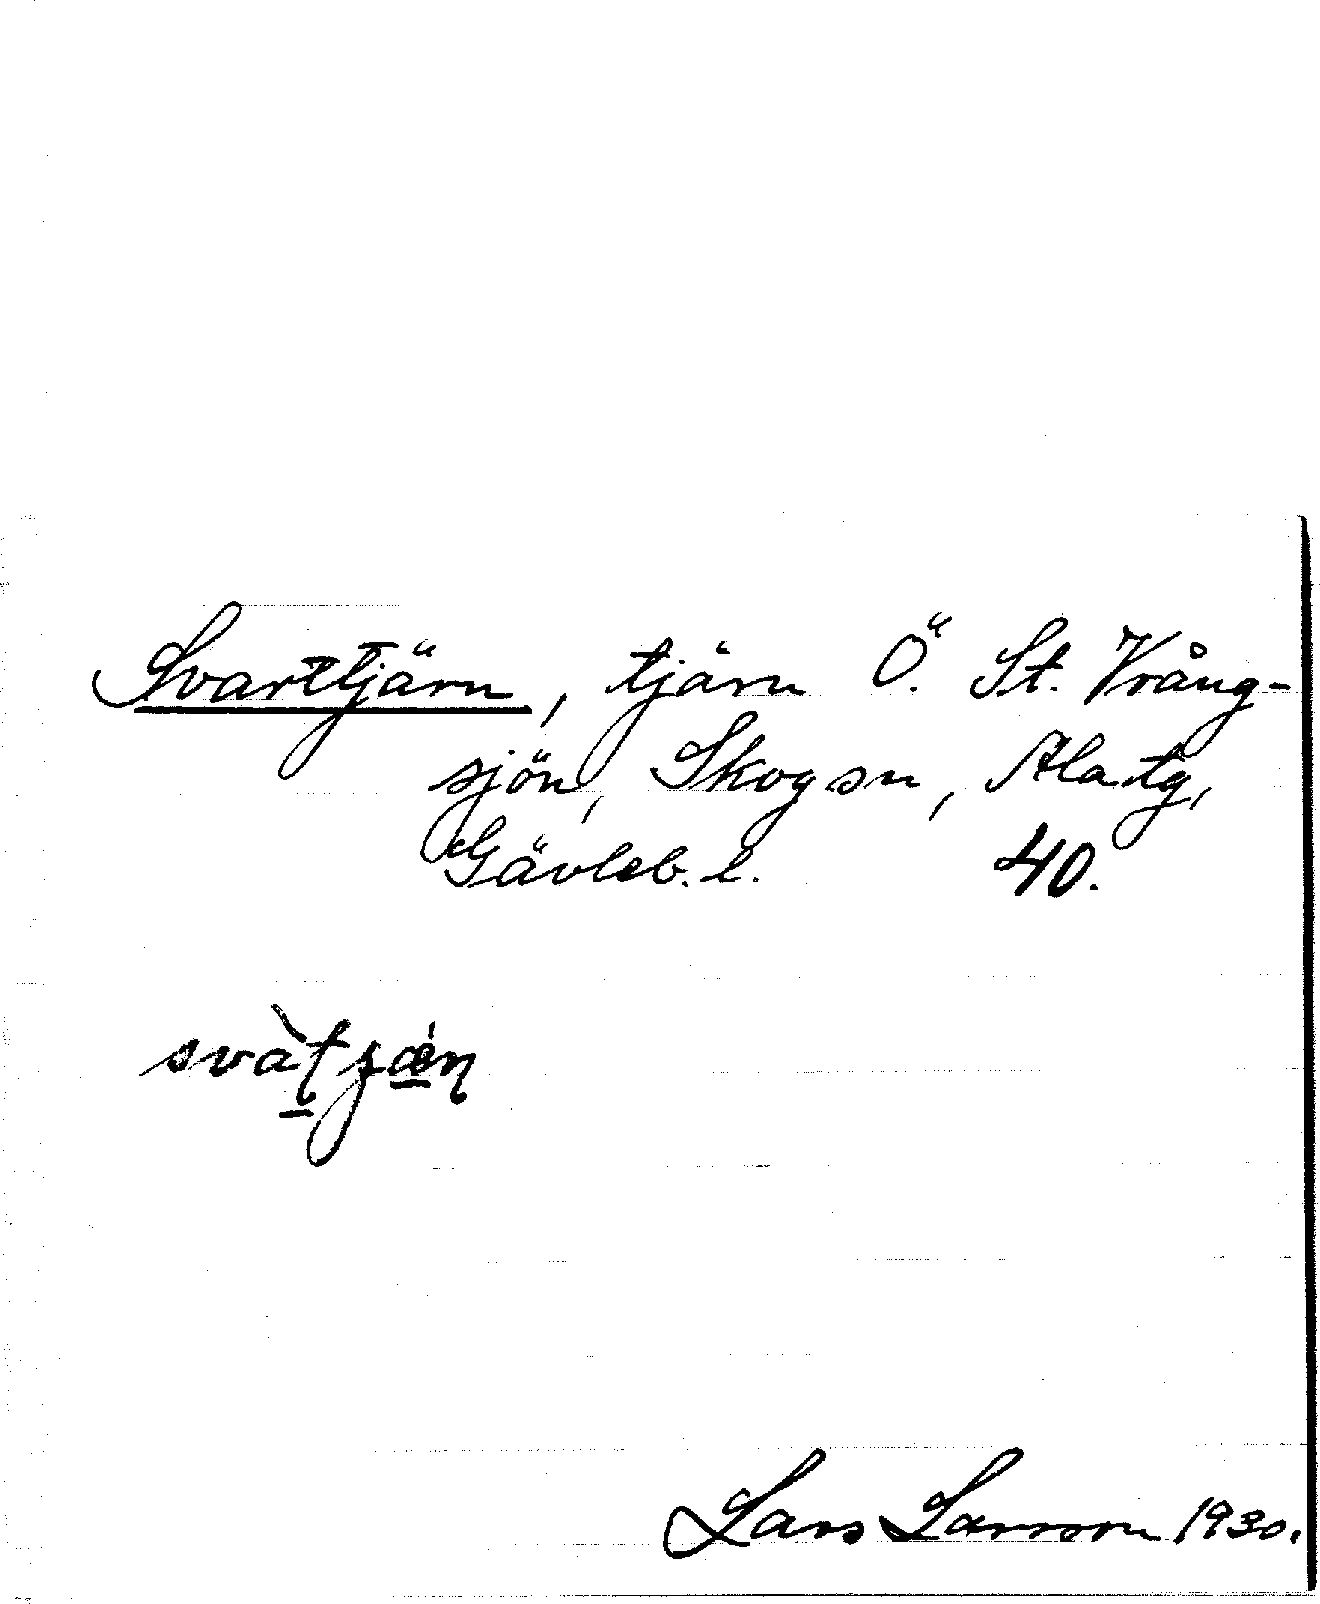 Svarttjärn, tjärn Ö. St. Vrång-
sjön, Skog sn, Ala tg,
Gävleb. l. 40.
Lars Larsson 1930.